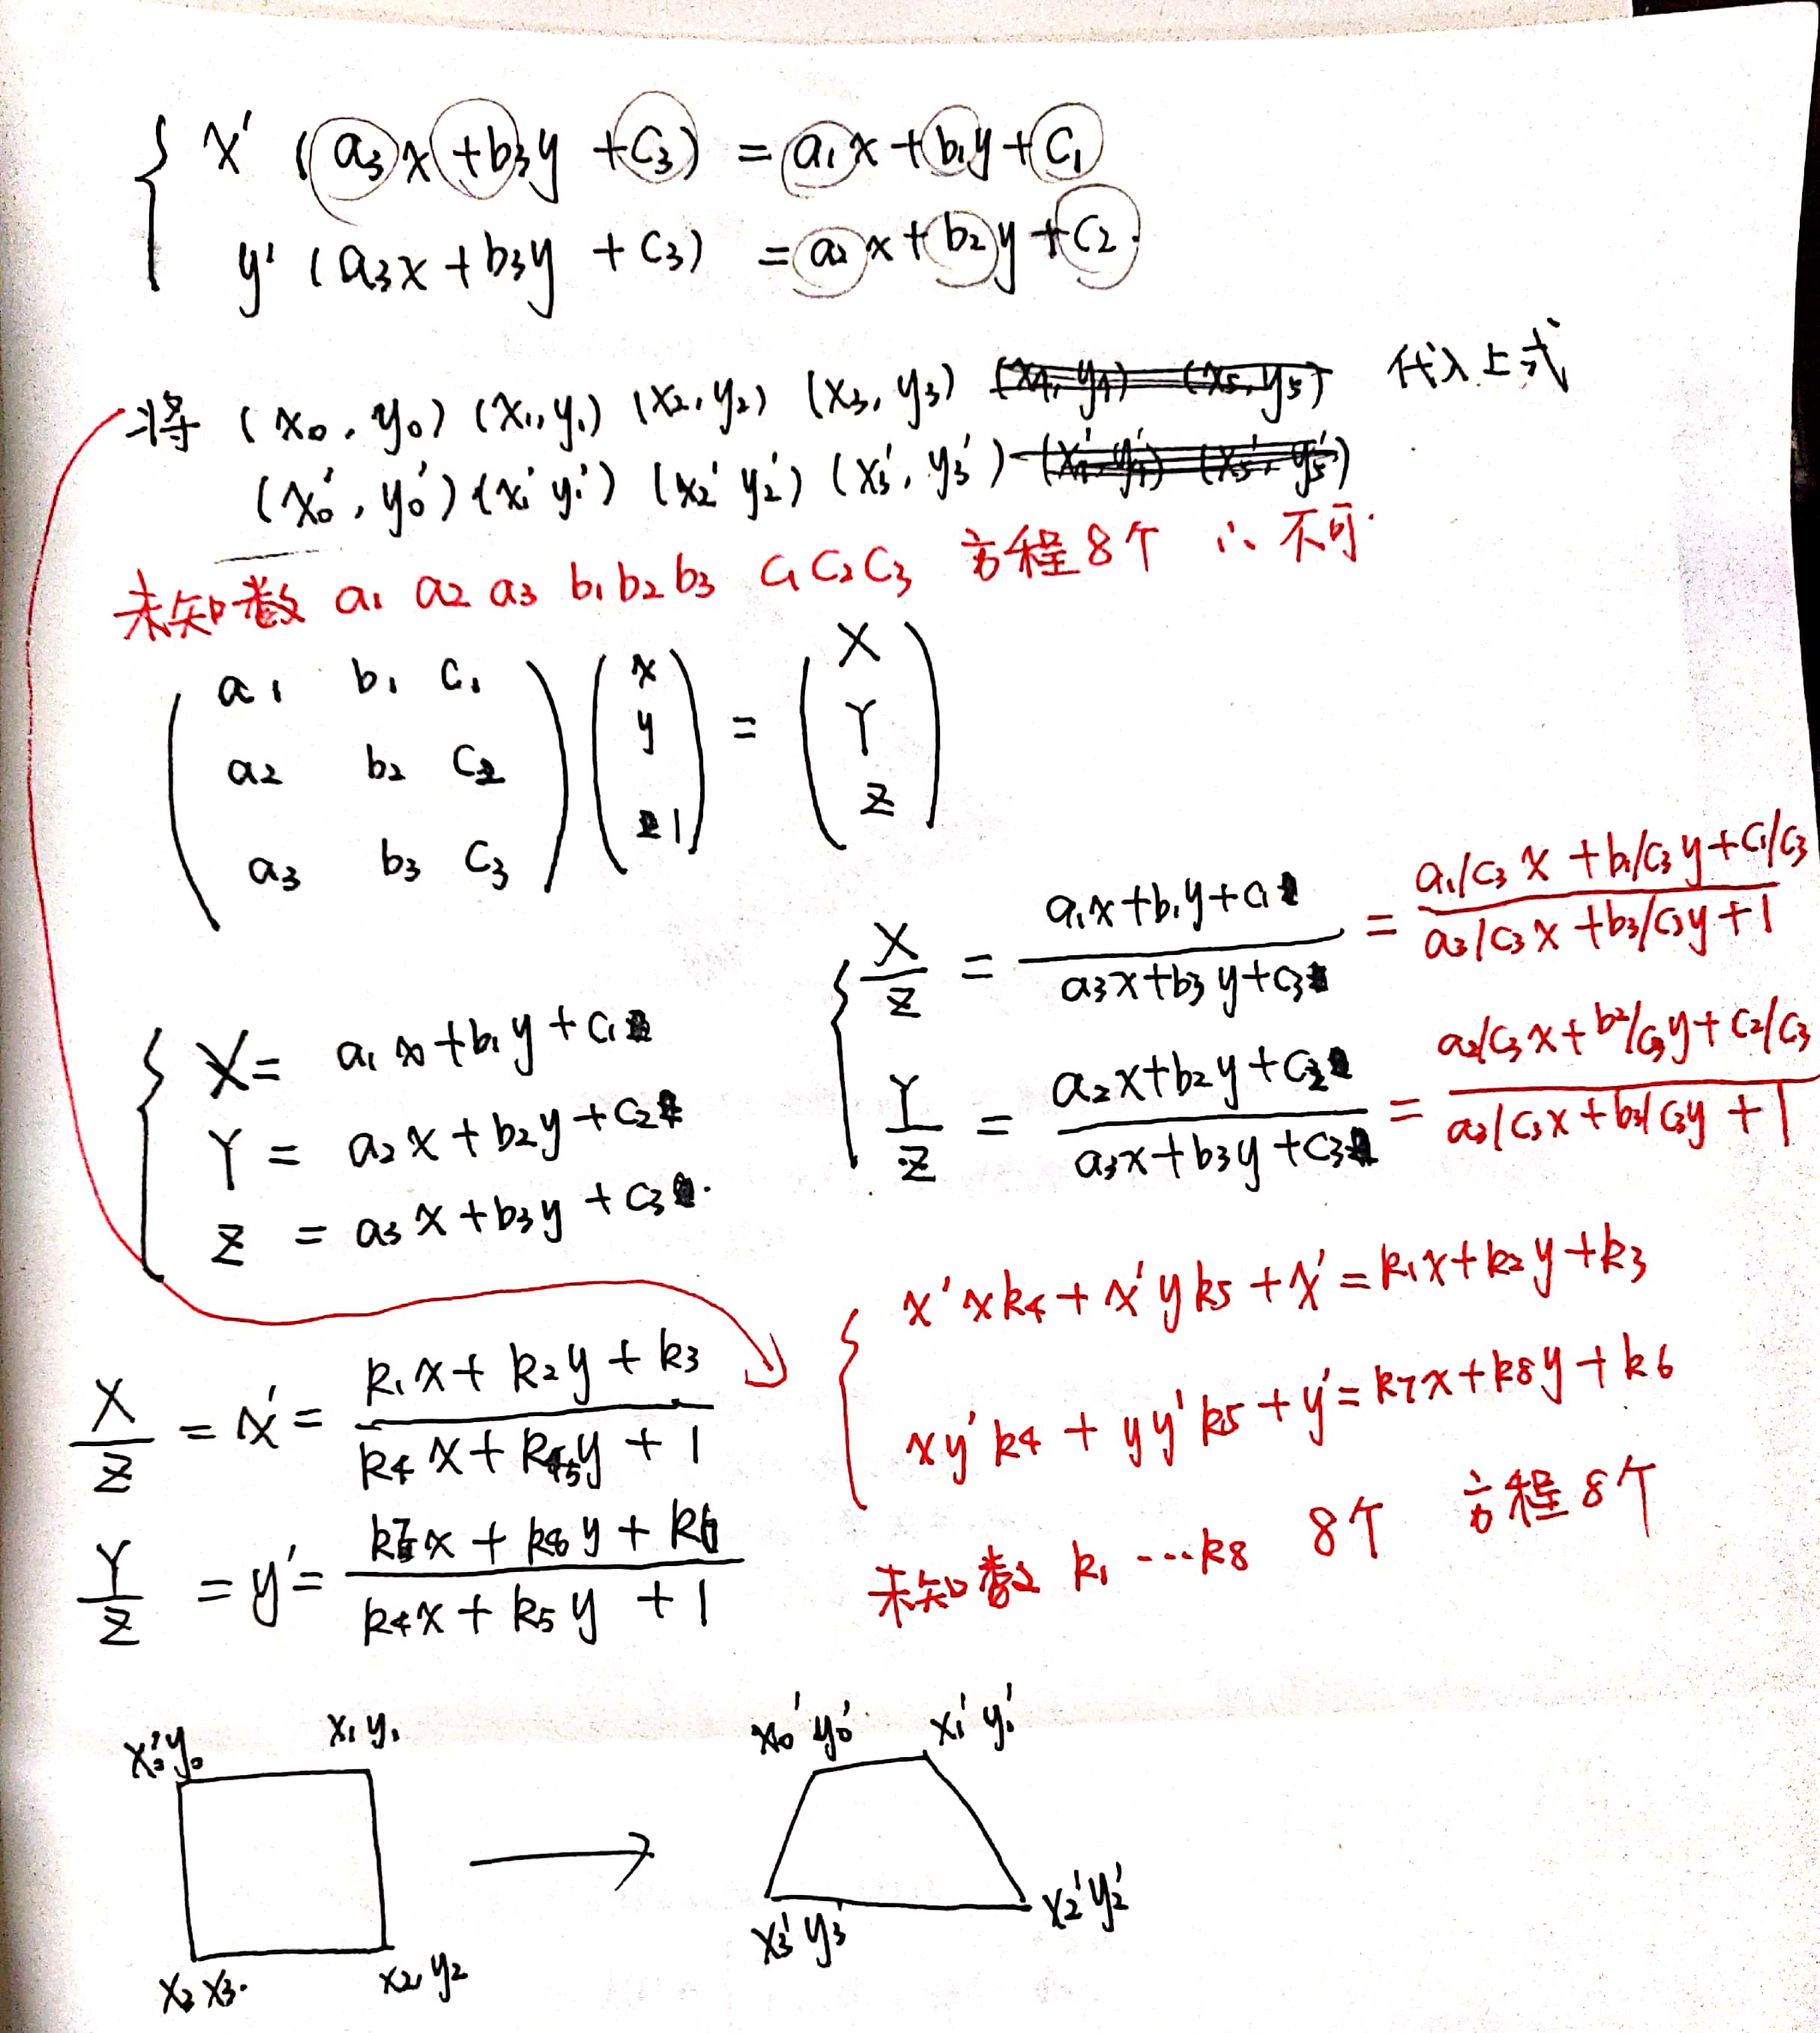 x' (a3x+b3y+c3) = a1x+b1y+c1
y' (a3x+b3y+c3) = a2x+b2y+c2.
将 (x0, y0) (x1, y1) (x2, y2) (x3, y3) (x4, y4) (x5, y5) 代入上式
(x0', y0') (x1' y1') (x2' y2') (x3', y3') (x4', y4') (x5', y5')
未知数 a1 a2 a3 b1 b2 b3 c1 c2 c3 方程8个 ∴ 不可.
a1 b1 c1
a2 b2 c2
a3 b3 c3
x
y
1
=
X
Y
Z
X/Z = (a1x+b1y+c1)/(a3x+b3y+c3) = (a1/c3 x + b1/c3 y + c1/c3)/(a3/c3 x + b3/c3 y + 1)
Y/Z = (a2x+b2y+c2)/(a3x+b3y+c3) = (a2/c3 x + b2/c3 y + c2/c3)/(a3/c3 x + b3/c3 y + 1)
X = a1x+b1y+c1
Y = a2x+b2y+c2
Z = a3x+b3y+c3.
x'xk4 + x'yk5 + x' = k1x+k2y+k3
xy'k4 + yy'k5 + y' = k7x+k8y+k6
未知数 k1 ···k8 8个 方程8个
X/Z = x' = (k1x+k2y+k3)/(k4x+k5y+1)
Y/Z = y' = (k7x+k8y+k6)/(k4x+k5y+1)
x1 y1
x0' y0'
x1' y1'
x2, y2
x3' y3'
x2' y2'